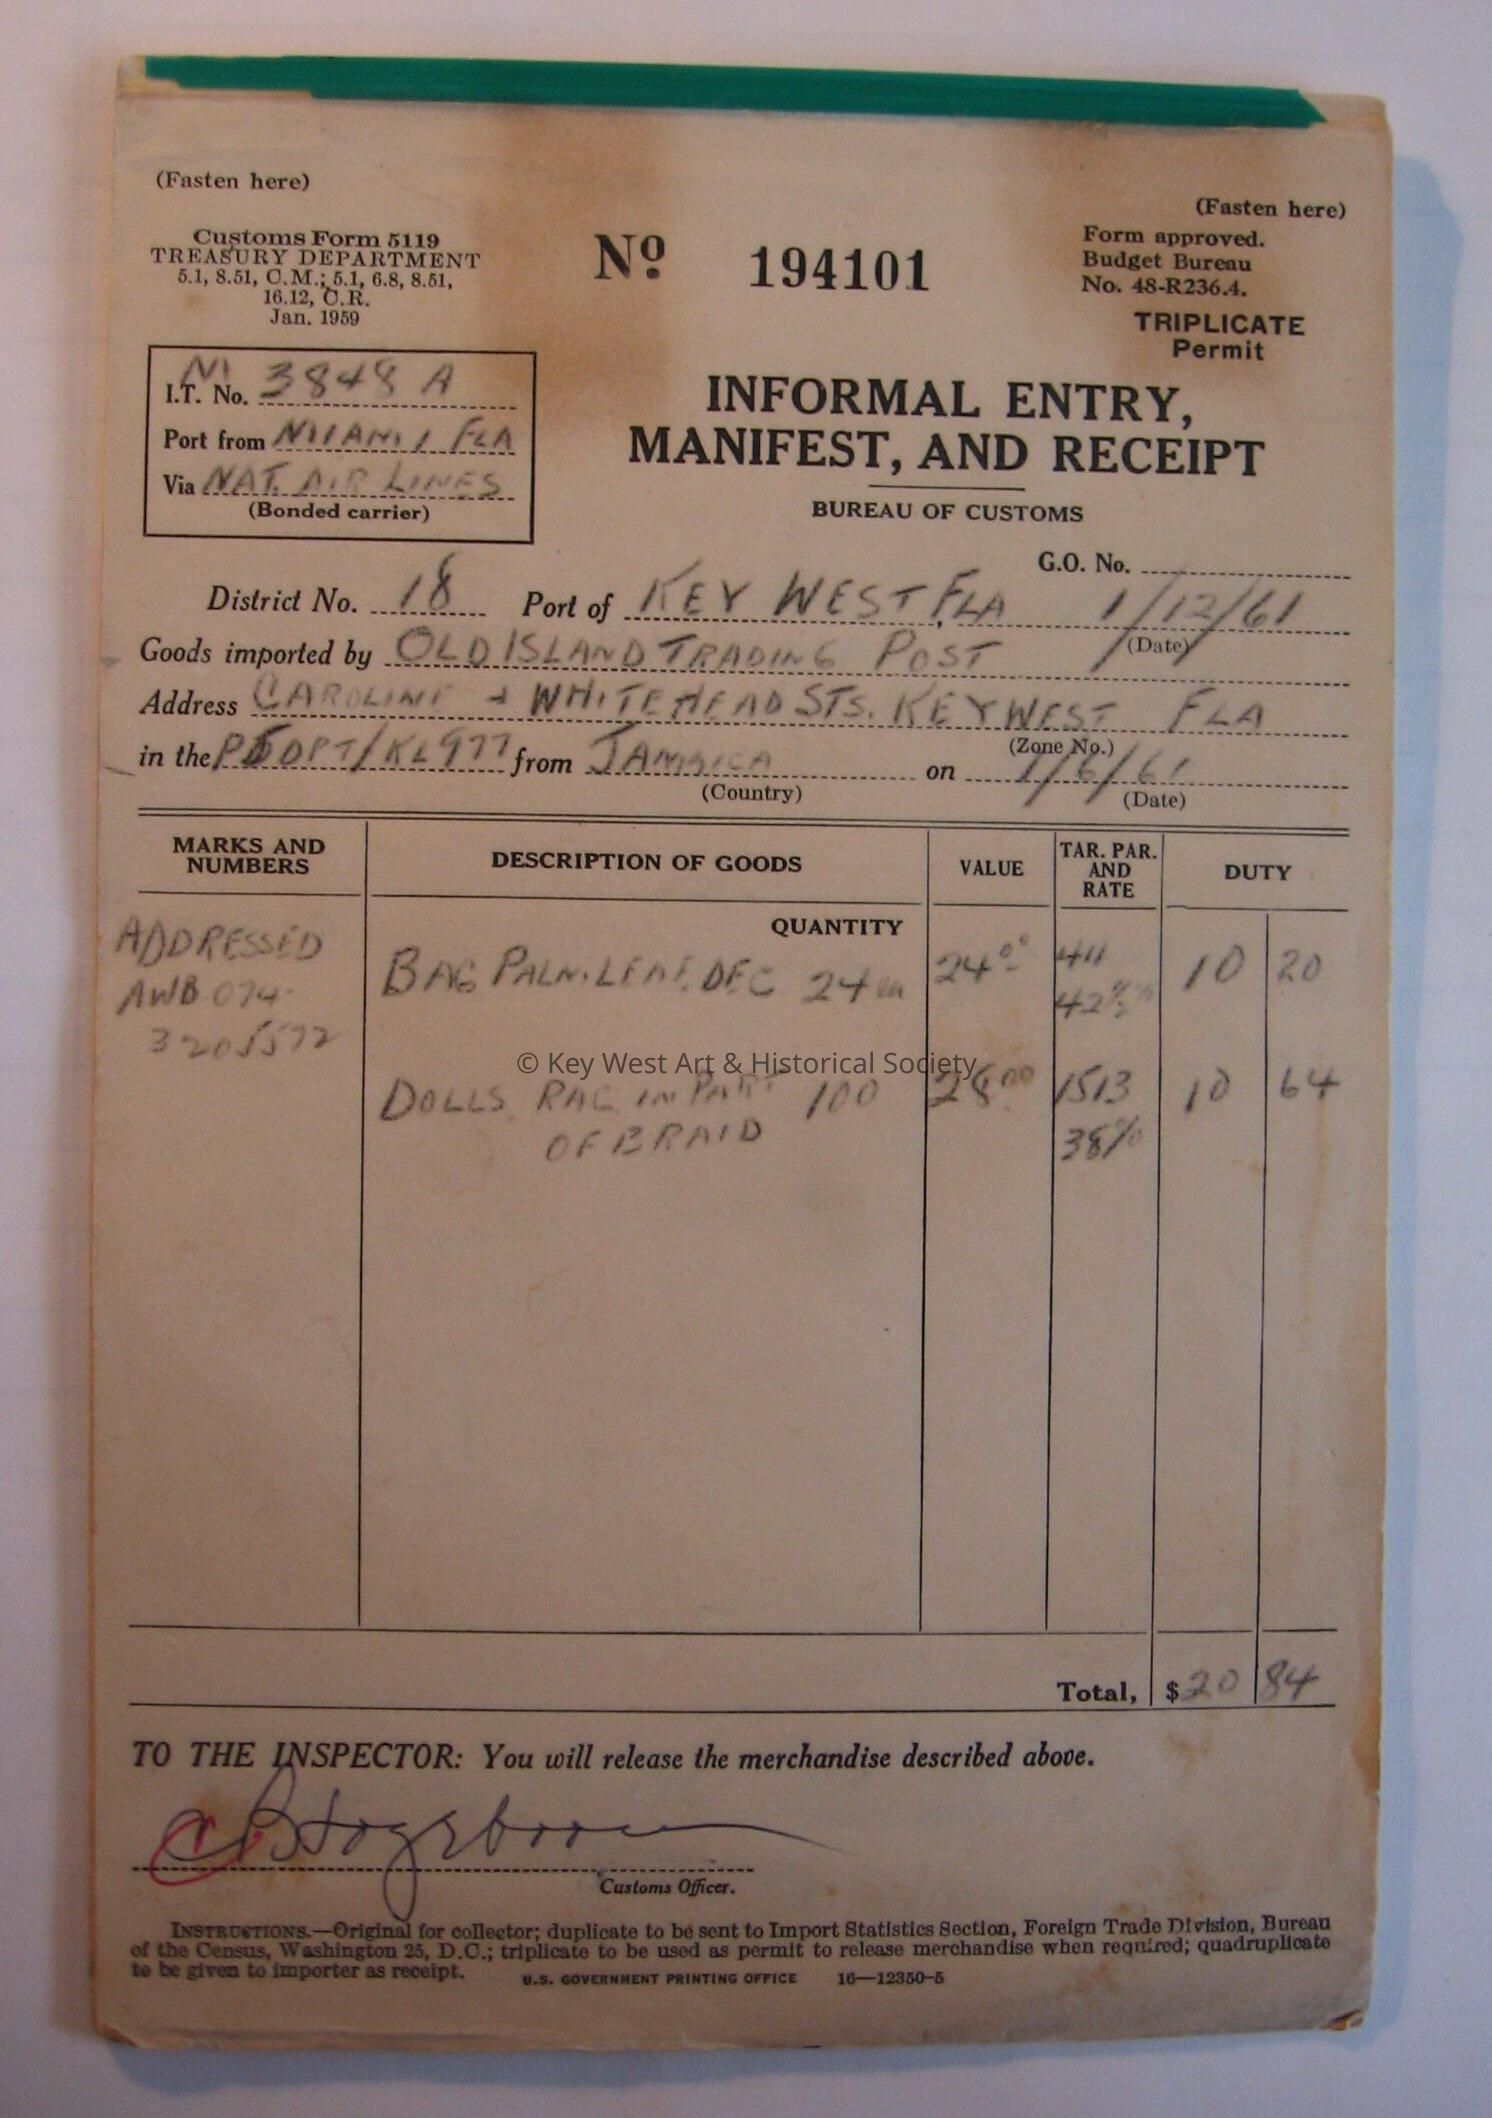 (Fasten here)
(Fasten here)
Customs Form 5119
TREASURY DEPARTMENT
5.1, 8.51, C.M.; 5.1, 6.8, 8.51,
16.12, C.R.
Jan. 1959
No. 194101
Form approved.
Budget Bureau
No. 48-R236.4.
TRIPLICATE
Permit
I.T. No. 3848 A
Port from MIAMI FLA
Via NAT. AIR LINES
(Bonded carrier)
INFORMAL ENTRY,
MANIFEST, AND RECEIPT
BUREAU OF CUSTOMS
G.O. No.
District No. 18 Port of KEY WEST, FLA 1/12/61
(Date)
Goods imported by OLD ISLAND TRADING POST
Address CAROLINE & WHITEHEAD STS. KEY WEST FLA
(Zone No.)
in the KL977 from JAMAICA on 1/6/61
(Country) (Date)
MARKS AND NUMBERS DESCRIPTION OF GOODS VALUE TAR. PAR. AND RATE DUTY
QUANTITY
ADDRESSED
AWB 074-
3205572
BAG PALM LEAF DEC 24 ea 24 00 411 10 20
42 ½ %
DOLLS RAG IN PART 100 28 00 1513 10 64
OF BRAID 38%
© Key West Art & Historical Society
Total, $20 84
TO THE INSPECTOR: You will release the merchandise described above.
Customs Officer.
INSTRUCTIONS.—Original for collector; duplicate to be sent to Import Statistics Section, Foreign Trade Division, Bureau
of the Census, Washington 25, D.C.; triplicate to be used as permit to release merchandise when required; quadruplicate
to be given to importer as receipt. U.S. GOVERNMENT PRINTING OFFICE 16—12350-5